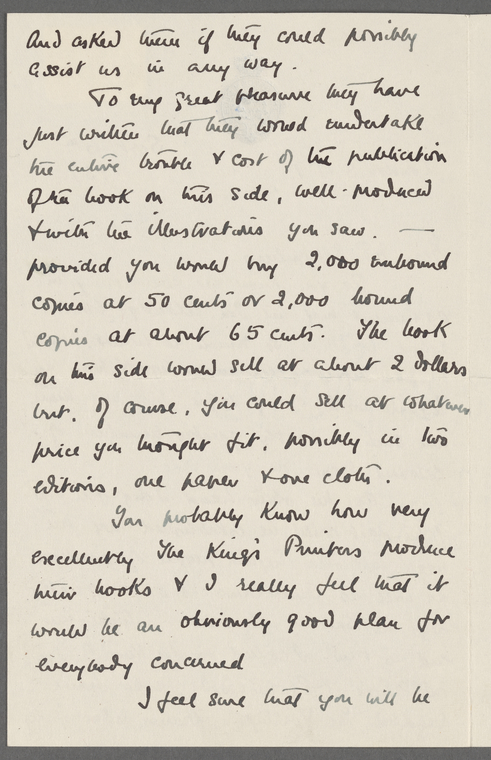 And asked them if they could possibly
assist us in any way.
To my great pleasure they have
just written that they would undertake
the entire trouble & cost of the publication
of the book on this side, well-produced
& with the illustrations you saw. —
provided you would buy 2,000 unbound
copies at 50 cents or 2,000 bound
copies at about 65 cents. The book
on this side would sell at about 2 dollars
but, of course, you could sell at whatever
price you thought fit, possibly in two
editions, one paper & one cloth.
You probably know how very
excellently The King's Printers produce
their books & I really feel that it
would be an obviously good plan for
everybody concerned
I feel sure that you will be